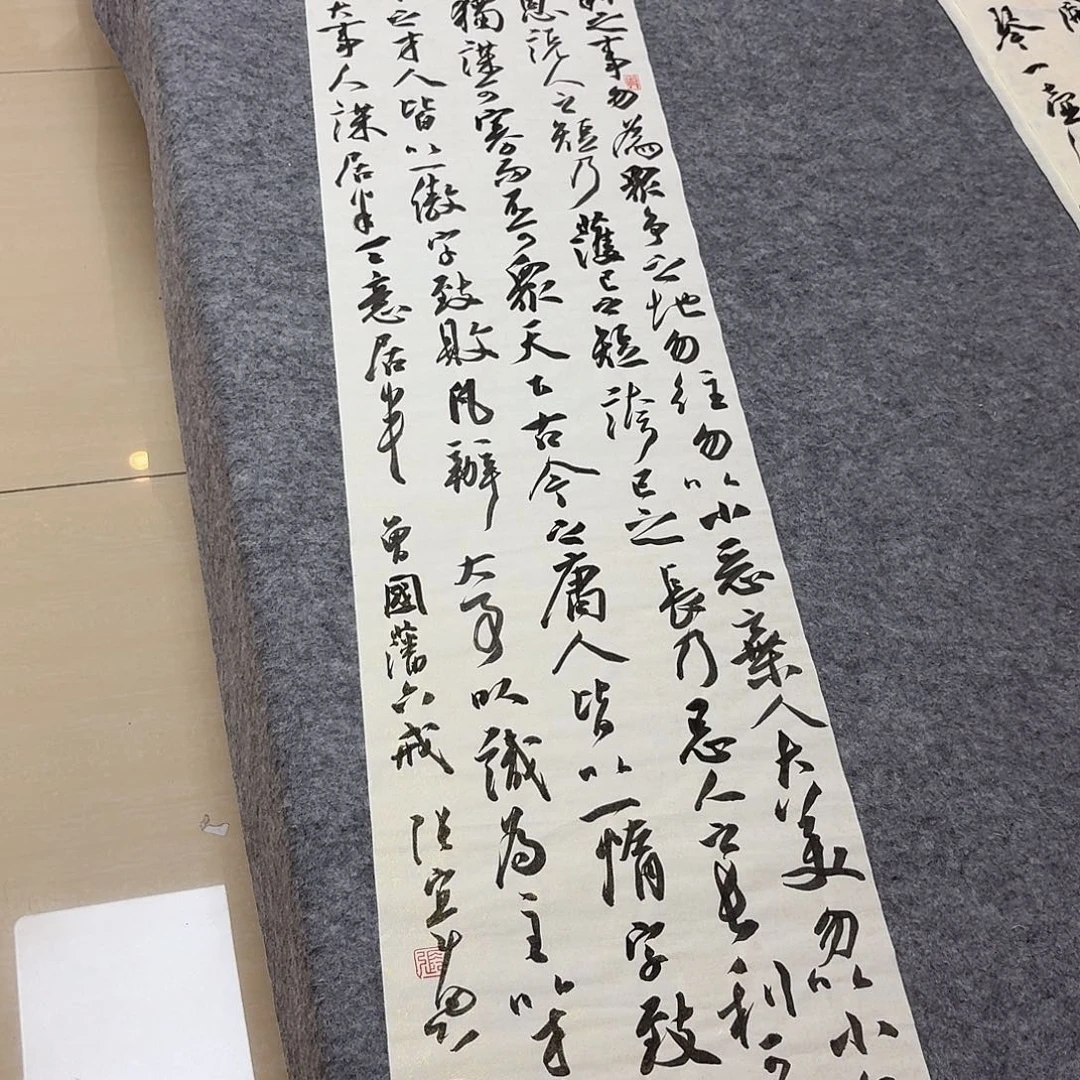 利之事勿為眾爭之地勿往勿以小惡棄人大美勿以小
恩說人之短乃護己之短誇己之長乃忌人之長利可
獨謀可寡而不可眾天下古今之庸人皆以一惰字致
之才人皆以一傲字致敗凡辦大事以識為主以才
大事人謀居半天意居半 曾國藩六戒
琴一壺